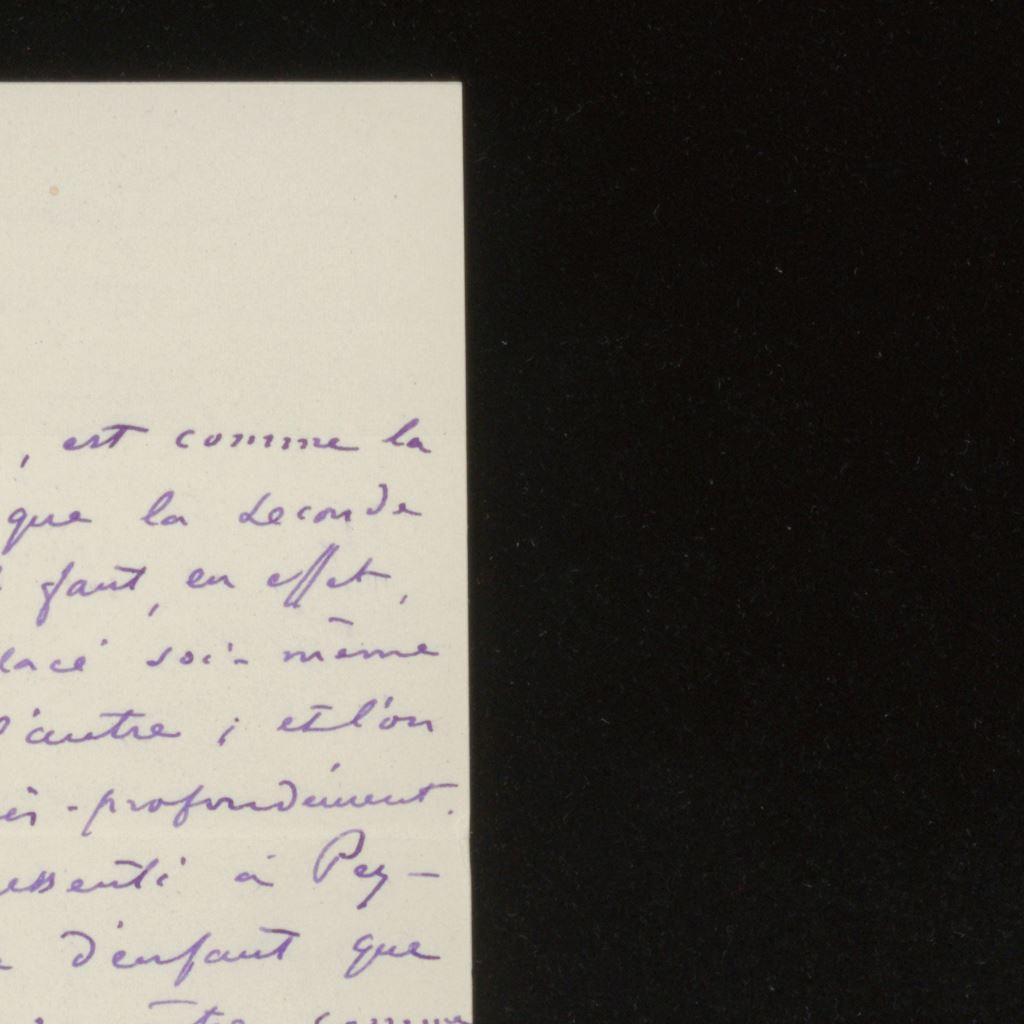 , est comme la
que la seconde
faut, en effet,
lacé soi-même
l'autre ; et l'on
ès-profondément.
essenti à Pey-
d'enfant que
tre comme